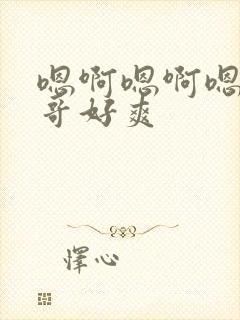 嗯啊嗯啊嗯
哥好爽
怿心